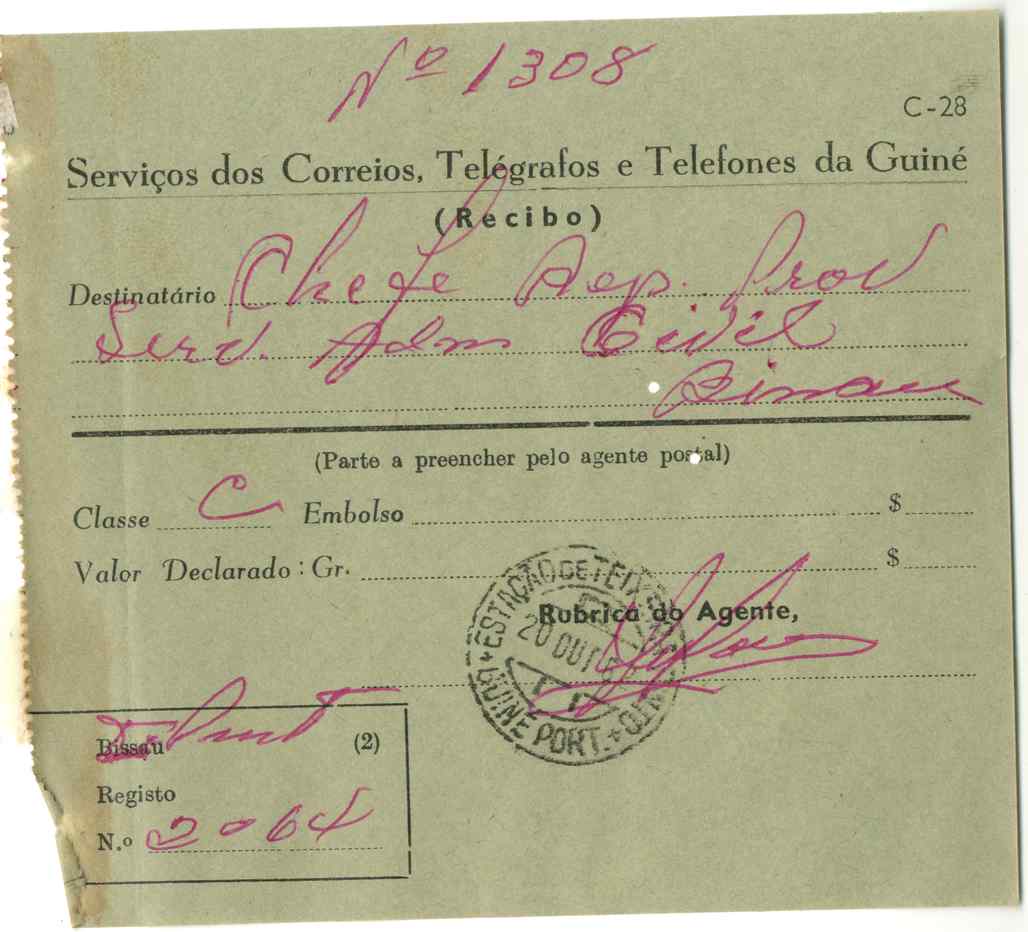 Nº 1308
C-28
Serviços dos Correios, Telégrafos e Telefones da Guiné
(Recibo)
Destinatário Chefe Rep. Prov
Serv. Adm Civil
Bissau
(Parte a preencher pelo agente postal)
Classe C Embolso $
Valor Declarado: Gr. $
ESTAÇÃO DE TEIXEIRA PINTO + GUINÉ PORT. +
20 OUT
Rubrica do Agente,
Bissau (2)
Registo
N.º 2064